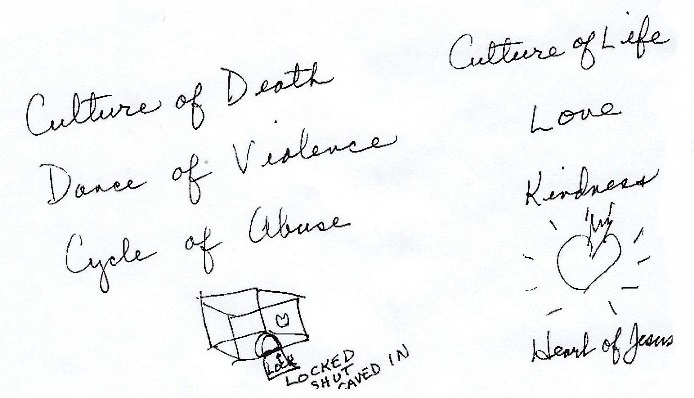 Culture of Death
Dance of Violence
Cycle of Abuse
LOCK
LOCKED
SHUT
CAVED IN
Culture of Life
Love
Kindness
Heart of Jesus